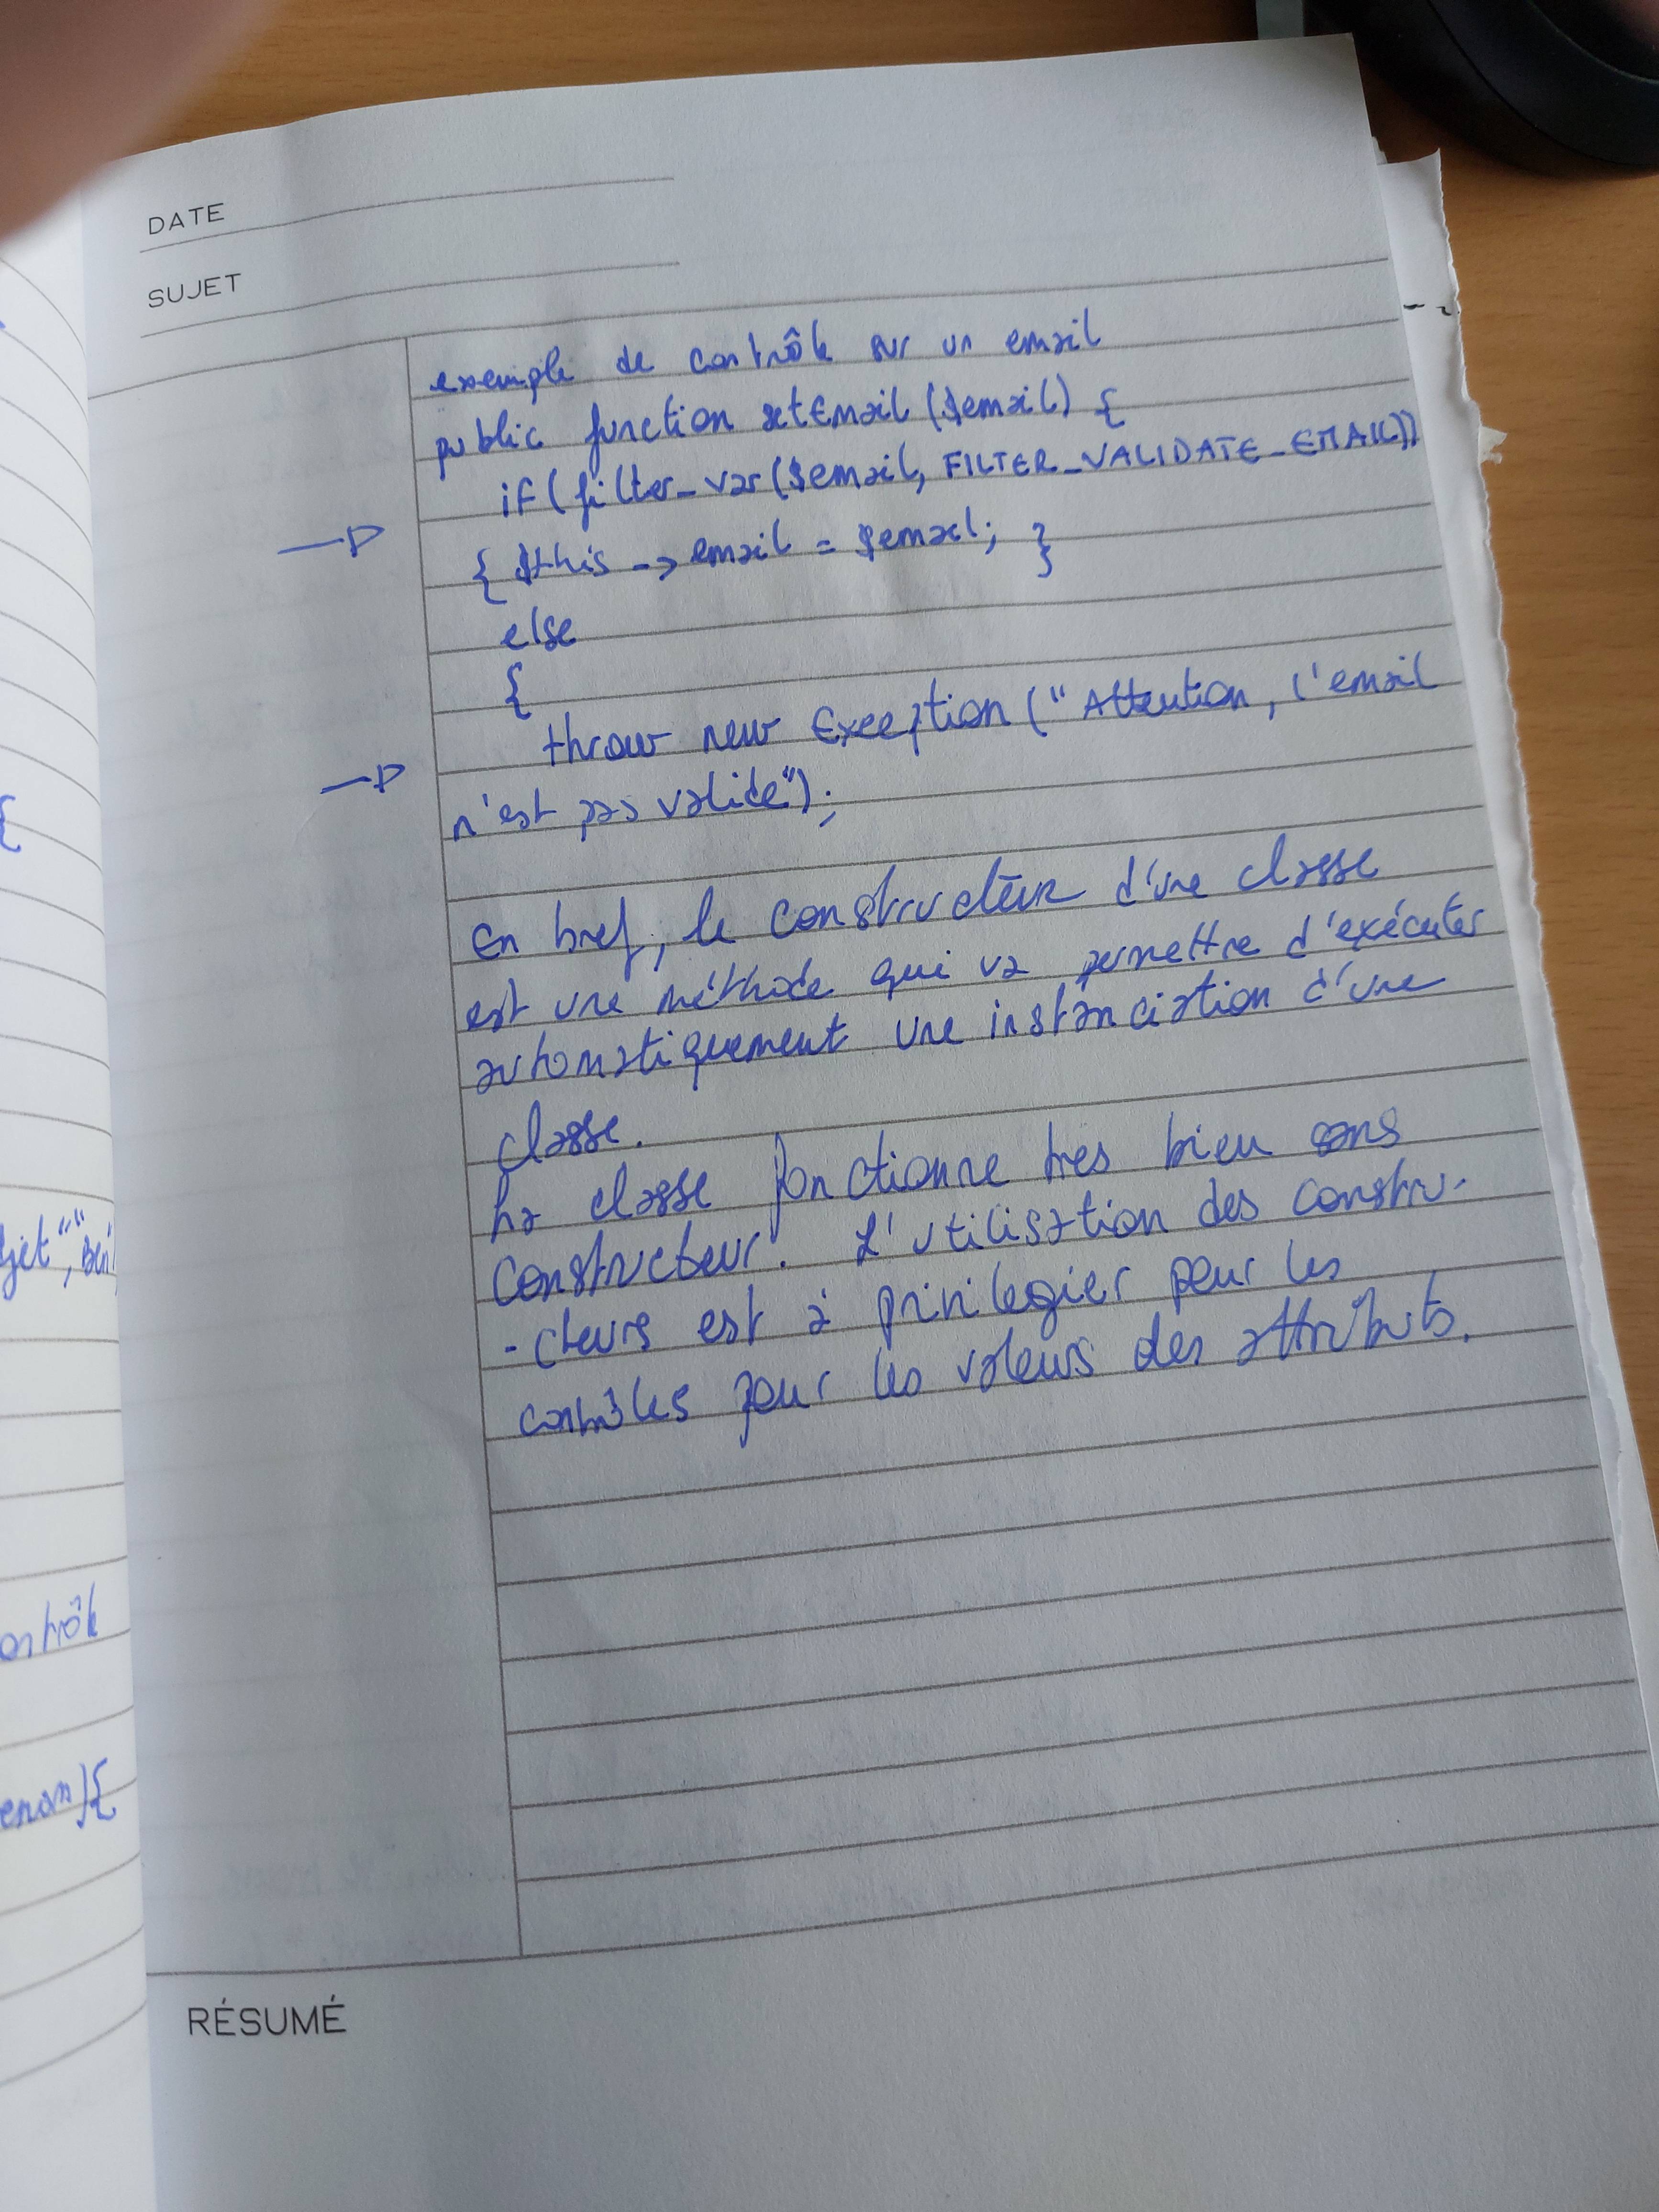 DATE
SUJET
exemple de contrôle sur un email
public function setEmail ($email) {
if (filter_var ($email, FILTER_VALIDATE_EMAIL))
{ $this -> email = $email; }
else
{
throw new Exception ("Attention, l'email
n'est pas valide");
En bref, le constructeur d'une classe
est une méthode qui va permettre d'exécuter
automatiquement une instanciation d'une
classe.
La classe fonctionne tres bien sans
constructeur. L'utilisation des constru-
-cteurs est à privilegier pour les
contrôles pour les valeurs des attributs.
RÉSUMÉ
{
ontrôle
enom) {